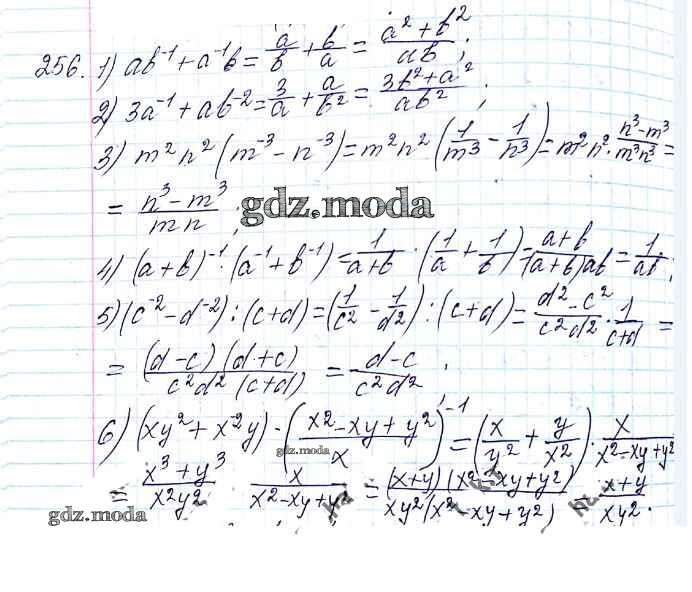 256. 1) ab⁻¹ + a⁻¹b = a/b + b/a = (a² + b²)/(ab);
2) 3a⁻¹ + ab⁻² = 3/a + a/b² = (3b² + a²)/(ab²);
3) m²n²(m⁻³ − n⁻³) = m²n²(1/m³ − 1/n³) = m²n² · (n³ − m³)/(m³n³) =
= (n³ − m³)/(mn);
gdz.moda
4) (a + b)⁻¹ · (a⁻¹ + b⁻¹) = 1/(a + b) · (1/a + 1/b) = (a + b)/((a + b)ab) = 1/(ab);
5) (c⁻² − d⁻²) : (c + d) = (1/c² − 1/d²) : (c + d) = (d² − c²)/(c²d²) · 1/(c + d) =
= ((d − c)(d + c))/(c²d²(c + d)) = (d − c)/(c²d²);
6) (xy² + x⁻²y) · ((x² − xy + y²)/x)⁻¹ = (x/y² + y/x²) · x/(x² − xy + y²)
gdz.moda
= (x³ + y³)/(x²y²) x/(x² − xy + y²) = ((x + y)(x² − xy + y²))/(xy²(x² − xy + y²)) = (x + y)/(xy²).
gdz.moda